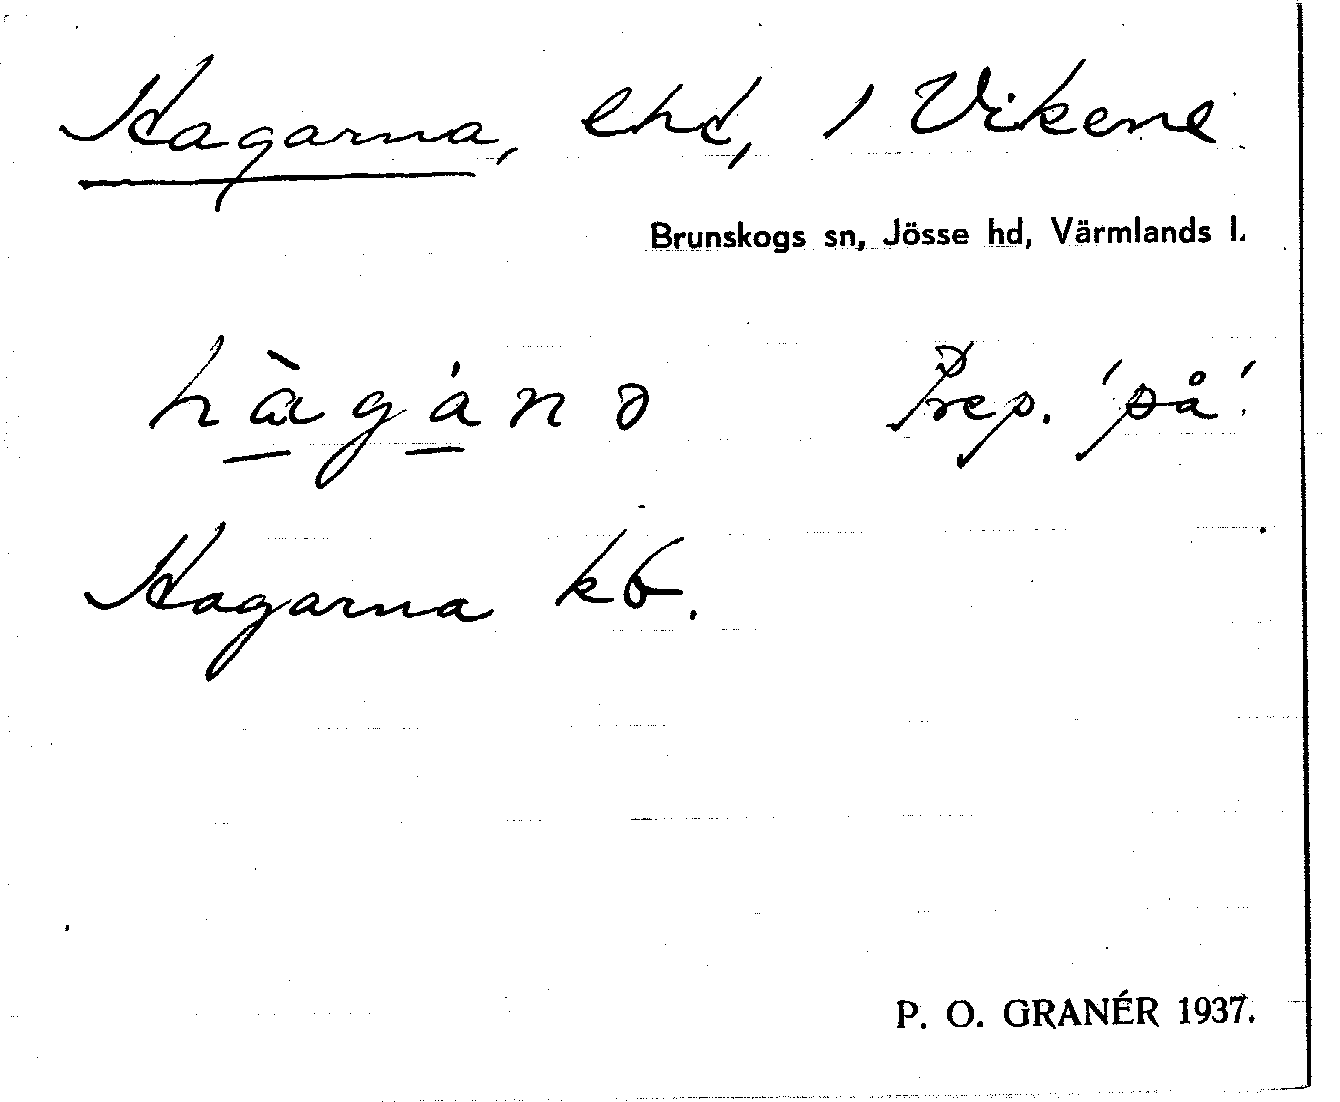 Hagarna, ehd, 1 Vikene
Brunskogs sn, Jösse hd, Värmlands l.
hàgánə Prep. 'på'.
Hagarna kb.
P. O. GRANÉR 1937.